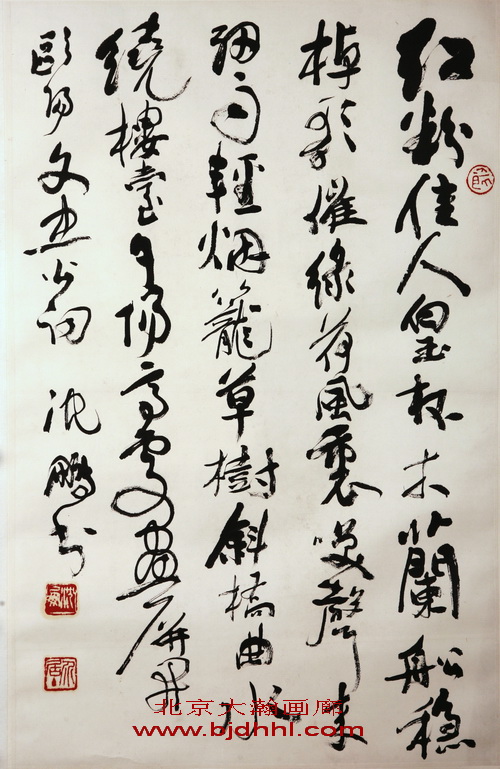 紅粉佳人白玉杯木蘭船穩
棹歌催綠荷風裏笑聲來
細雨輕烟籠草樹斜橋曲水
繞樓臺夕陽高處畫屏開
歐陽文忠公詞 沈鵬書
北京大瀚画廊
www.bjdhhl.com